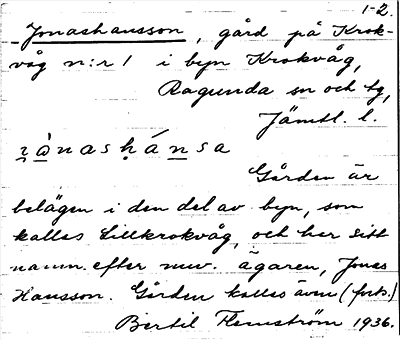 1-2.
Jonashansson, gård på Krok-
våg n:r 1 i byn Krokvåg,
Ragunda sn och tg,
Jämtl. l.
Gården är
belägen i den del av byn, som
kallas Lillkrokvåg, och har sitt
namn efter nuv. ägaren, Jonas
Hansson. Gården kallas även (forts.)
Bertil Flemström 1936.